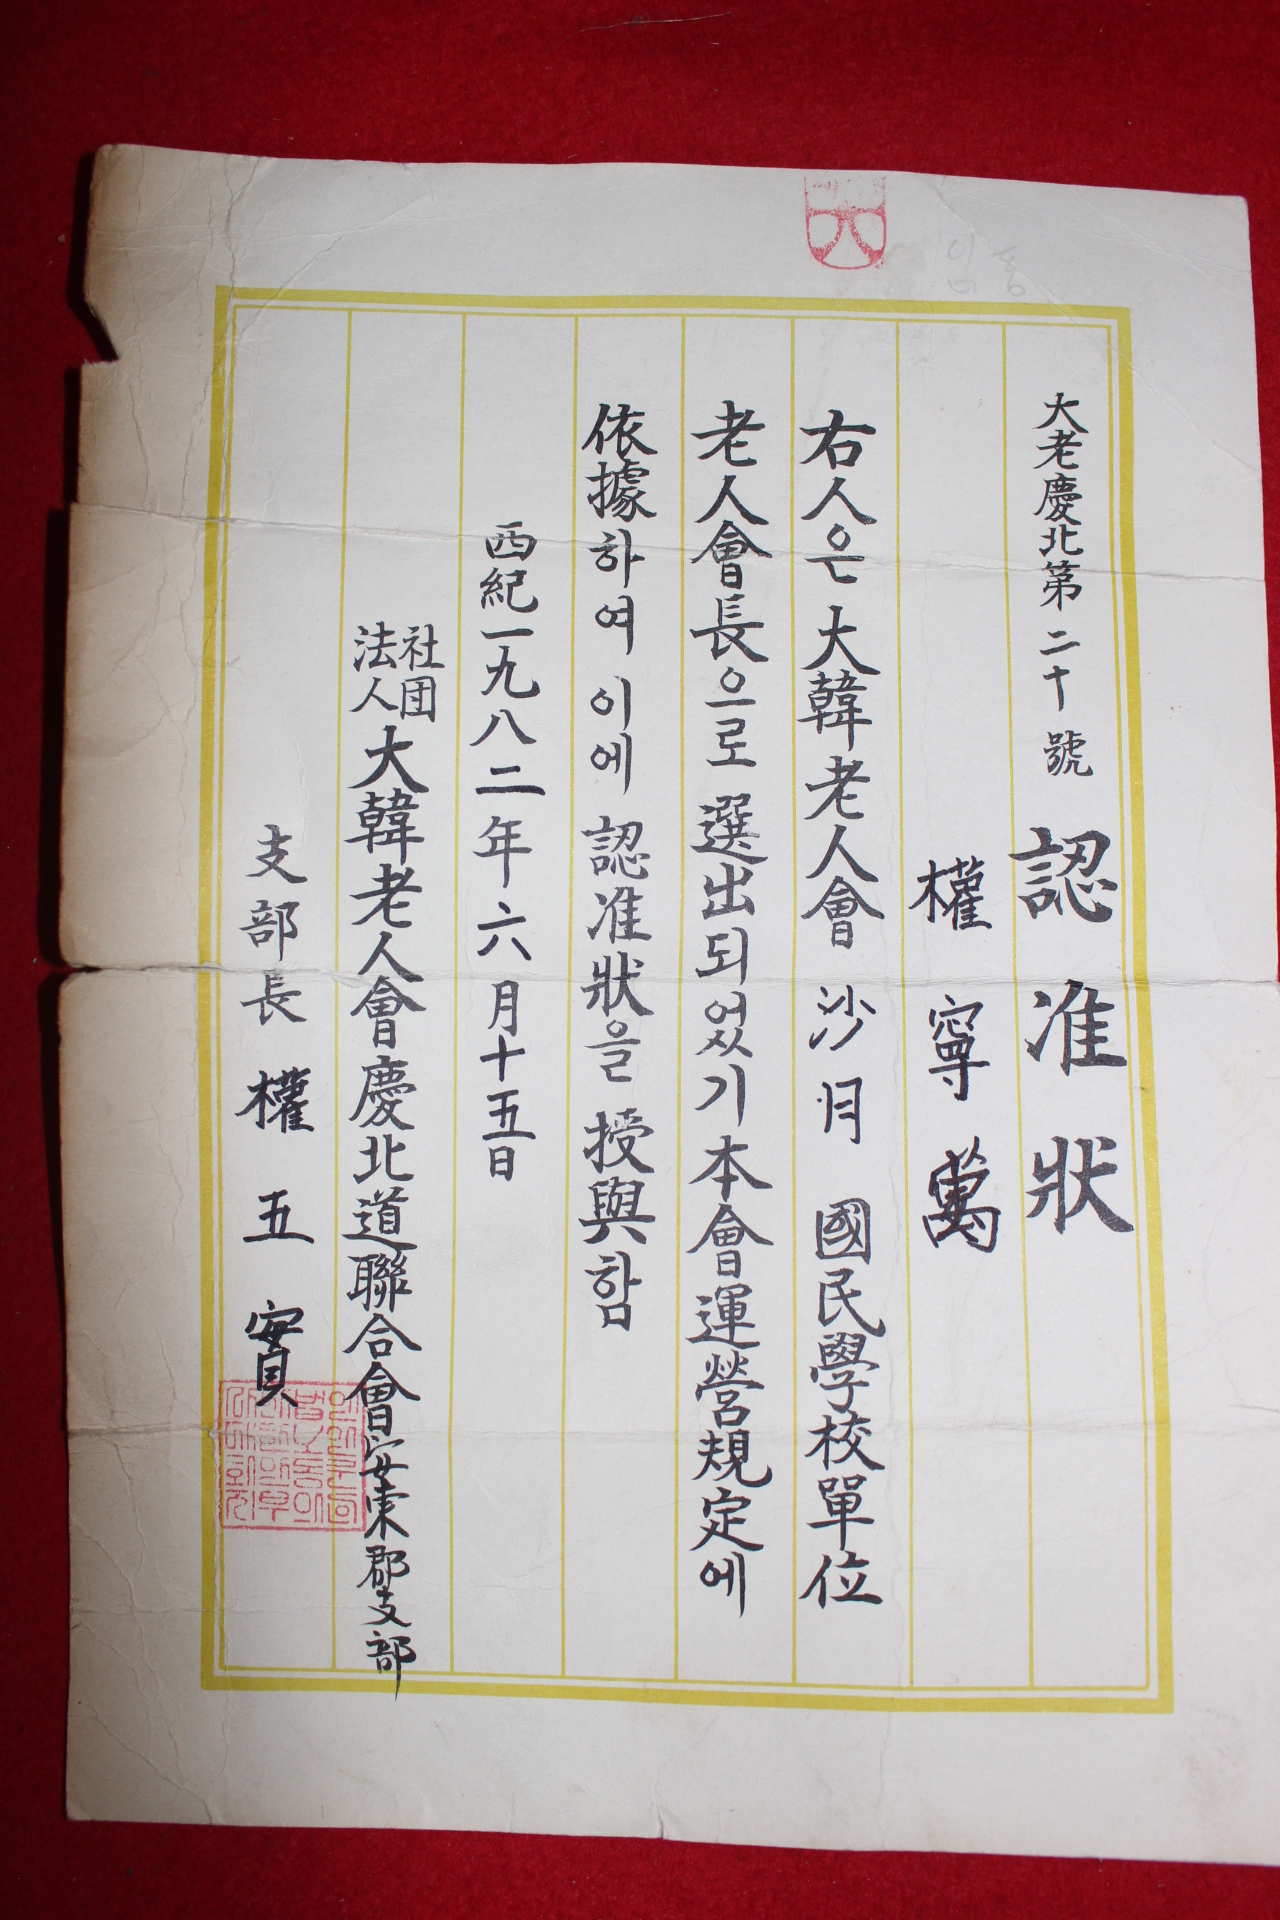 大老慶北第二十號 認准狀
權寧萬
右人은 大韓老人會 沙月 國民學校單位
老人會長으로 選出되었기 本會運營規定에
依據하여 이에 認准狀을 授與함
西紀一九八二年六月十五日
社団法人 大韓老人會慶北道聯合會安東郡支部
支部長 權五寅